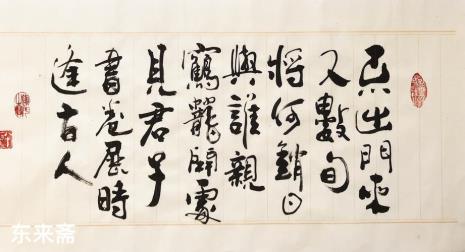 不出門來
又數旬
將何銷日
與誰親
鶴籠開處
見君子
書卷展時
逢古人
东来斋